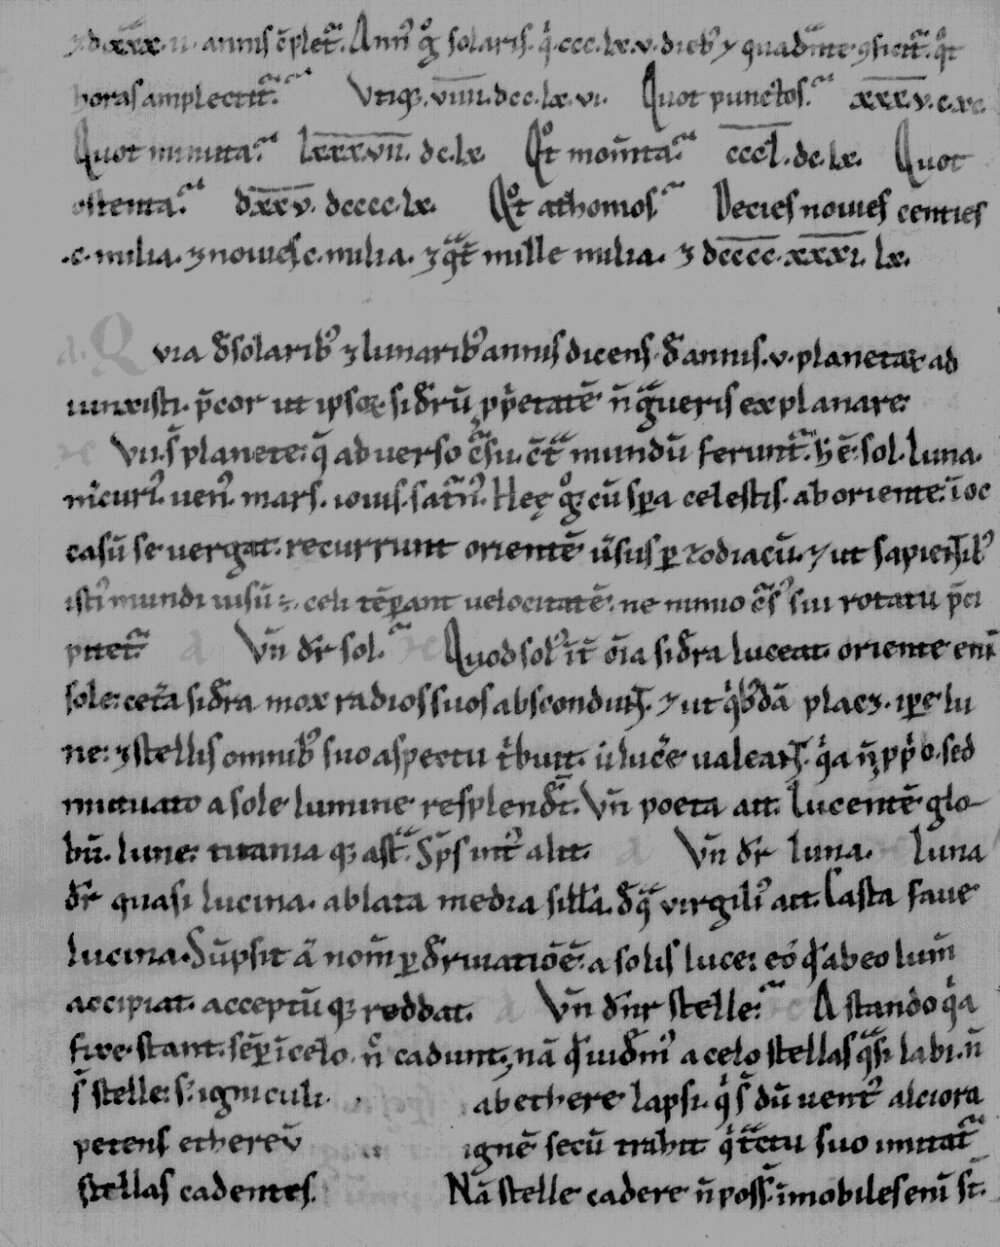 ⁊ dxxx.ii. annis c̄plet᷑. Ann᷒ g̊ solaris. q̇ .ccc.lx.v. dieb᷒ ⁊ quad̄nte ꝯficit᷑. q̊t
horas amplectit᷑. Vtiqꝫ .viiii.dcc.lx.vi. Quot punctos. x̅x̅x̅.v.c.xc.
Quot minuta. l̅x̅x̅x̅v̅i̅i̅. dc.lx. Q̊t mom̄ta. c̅c̅c̅l̅. dc.lx. Quot
ostenta. d̅x̅x̅v̅. dcccc.lx. Q̊t athomos. Decies novies centies
.c. milia. ⁊ novies .c. milia. ⁊ q̄t mille milia. ⁊ d̅c̅c̅c̅c̅.x̅x̅x̅i̅. lx.
Qvia d̄ solarib᷒ ⁊ lunarib᷒ annis dicens. d̄ annis .v. planetaꝝ ad
iunxisti. p̄cor ut ipsoꝝ sid̄rū ꝓp̄etatē n̄ g̈veris explanare.
Vii. s̄ planete: q̄ adverso c̄su. c̄t mundū ferunt᷑. h̄ ē. sol. luna.
m̄curi᷒. ven᷒. mars. iovis. sat̄n᷒. Hee g̊ cū sp̄a celestis. ab oriente. ī oc
casū se vergat. recurrunt orientē v̄sus ꝑ zodiacū. ⁊ ut sapientib᷒
isti᷒ mundi visū ÷. celi tēꝑant velocitatē: ne nimio c̄su sui rotatu p̄ci
pitet᷑. Vn̄ d̄r sol. Quod sol᷒ īt oīa sid̄ra luceat. oriente enī
sole: cet̄a sid̄ra mox radios suos abscondunt. ⁊ ut q̇b᷒dā placꝫ. ip̄e lu
ne: ⁊ stellis omnib᷒ suo aspectu t̄buit. ú lućē valeant. q̇a n̄ ꝓp̄o. sed
mutuato a sole lumine resplend̄t. Vn̄ poeta ait. Lucentē glo-
bū. lune: titania qꝫ ast᷑. Sp̄s int᷒ alit. Vn̄ d̄r luna. Luna
d̄r quasi lucina. ablata media silla. d̄ q̄ virgili᷒ ait. Casta fave
lucina. Sūpsit ā nom̄ ꝑ d̄rivatiōē: a solis luce: eó qd̄ ab eo lum̄
accipiat. acceptūqꝫ reddat. Vn̄ dn̄r stelle. A stando q̇a
fixe stant. sēꝑ ī celo. n̊ cadunt. nā qd̄ vid̄m᷒ a celo stellas q̄si labi. n̄
s̄ stelle: s꞉ igniculi. ab ethere lapsi. q̇ s̄ dū vent᷒ alciora
petens ethereū ignē secū trahit q̇ t̄ctu suo imitat᷑
stellas cadentes. Nā stelle cadere n̄ poss̄. īmobiles enī st̄.